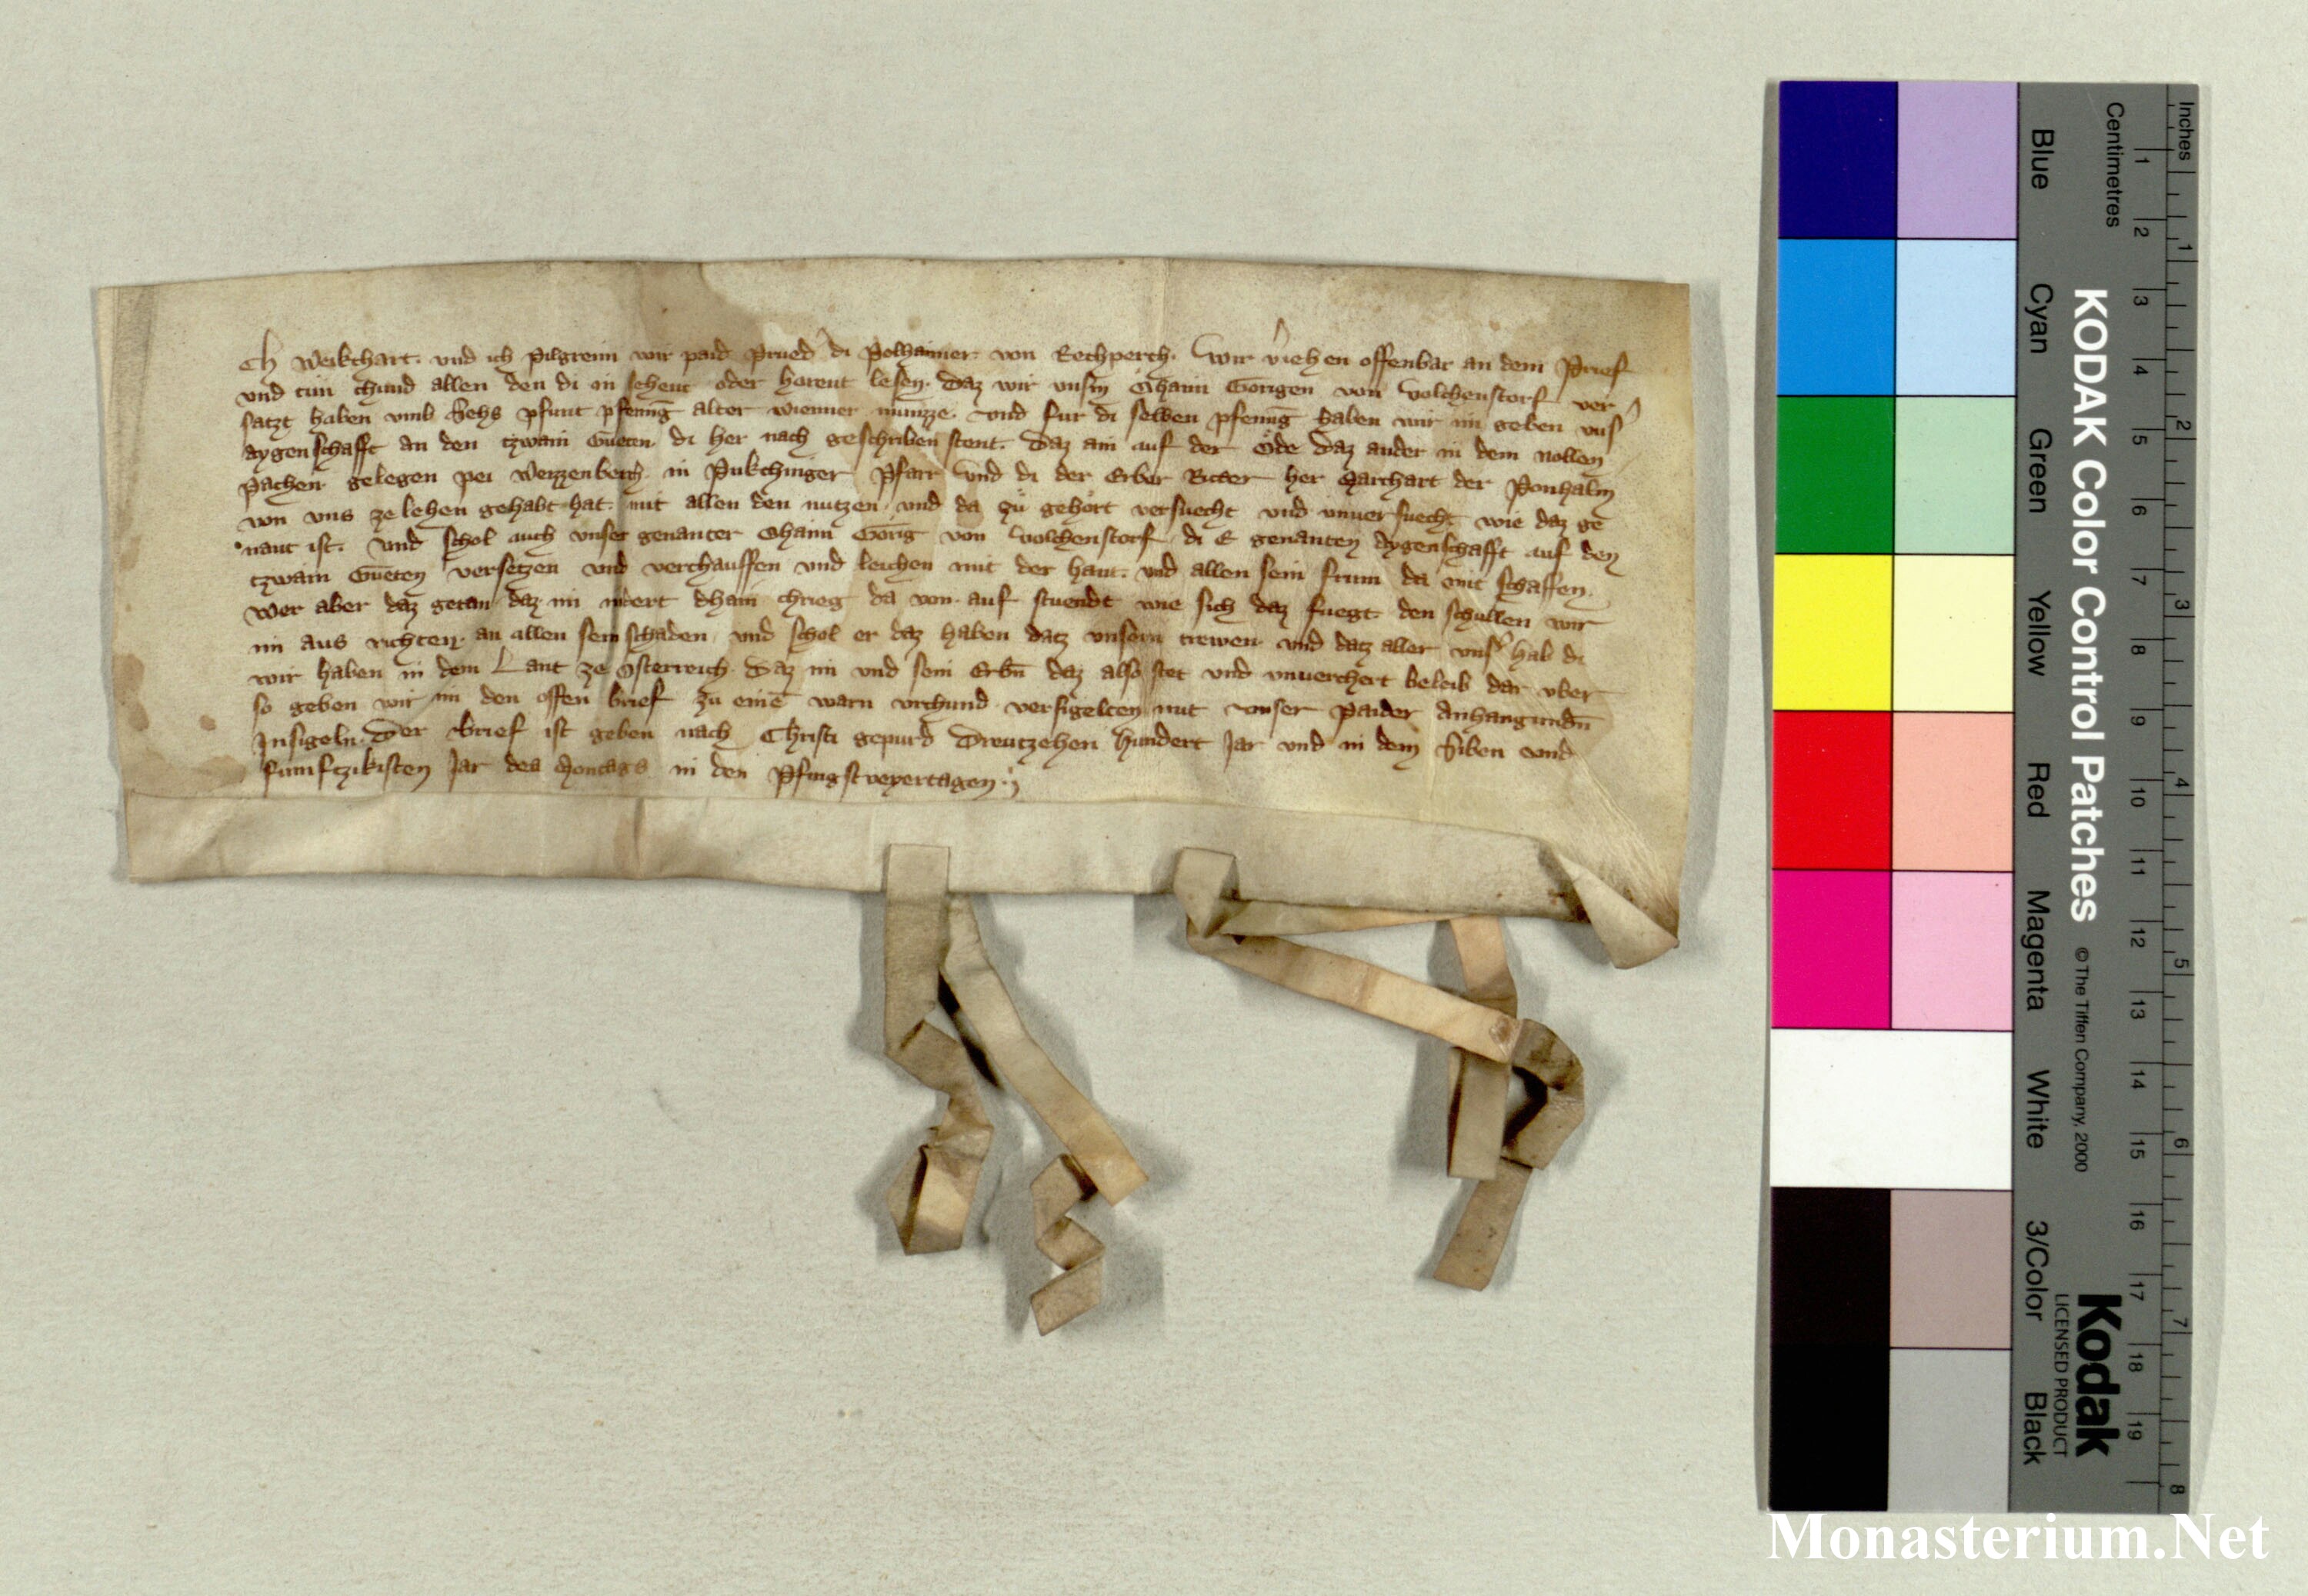 Ch Weikchart. und ich Pilgreim wir paid Prued di Polhaimer. von Rechperch. Wir v̾iehen offenbar an dem Prief
und tun chund allen den di in sehent oder horent lesen. Daz wir unsm̄ Ohaim Gorigen von Volchenstorf ver
satzt haben umb Sehs pfunt pfenīg alter wienner munizze. und fur di selben pfenīg haben wir im geben uns̾
aygenschafft an den tzwain Gueten di her nach geschriben stent. Daz ain auf der Ode daz ander in dem nollen
pachen gelegen pei Weizzenberch in Pukchinger Pfarr und di der Erber Ritter her Marchart der Ponhalm
von uns ze lehen gehabt hat. mit allen den nutzen und da zů gehört versuecht und unuersuecht wie daz ge
nant ist. Und schol auch unser genanter Ohaim Görig von Volchenstorf di E genanten Aygenschafft auf den
tzwain Gueten versetzen und verchauffen und leichen mit der hant. und allen sein frum da mit schaffen.
Wer aber daz getan daz im ndert dhain chrieg da von auf stuendt wie sich daz fuegt den schullen wir
im aus richten an allen sein schaden und schol er daz haben datz unsern trewen und datz aller uns̾ hab di
wir haben in dem Lant ze Osterreich. Daz im und sein Erbn̄ daz also stet und unuerchert beleib dar uber
so geben wir im den offen brief zu einē warn urchund versigelten mit unser paider Anhangundn̄
Insigeln. Der brief ist geben nach Christi gepurd Dreutzehen hundert Jar und in dem Siben und
funftzikisten Jar des Montags in den Pfingstveyertagen.
KODAK Color Control Patches
© The Tiffen Company, 2000
Kodak
LICENSED PRODUCT
Blue Cyan Green Yellow Red Magenta White 3/Color Black
Inches 1 2 3 4 5 6 7 8
Centimetres 1 2 3 4 5 6 7 8 9 10 11 12 13 14 15 16 17 18 19
Monasterium.Net